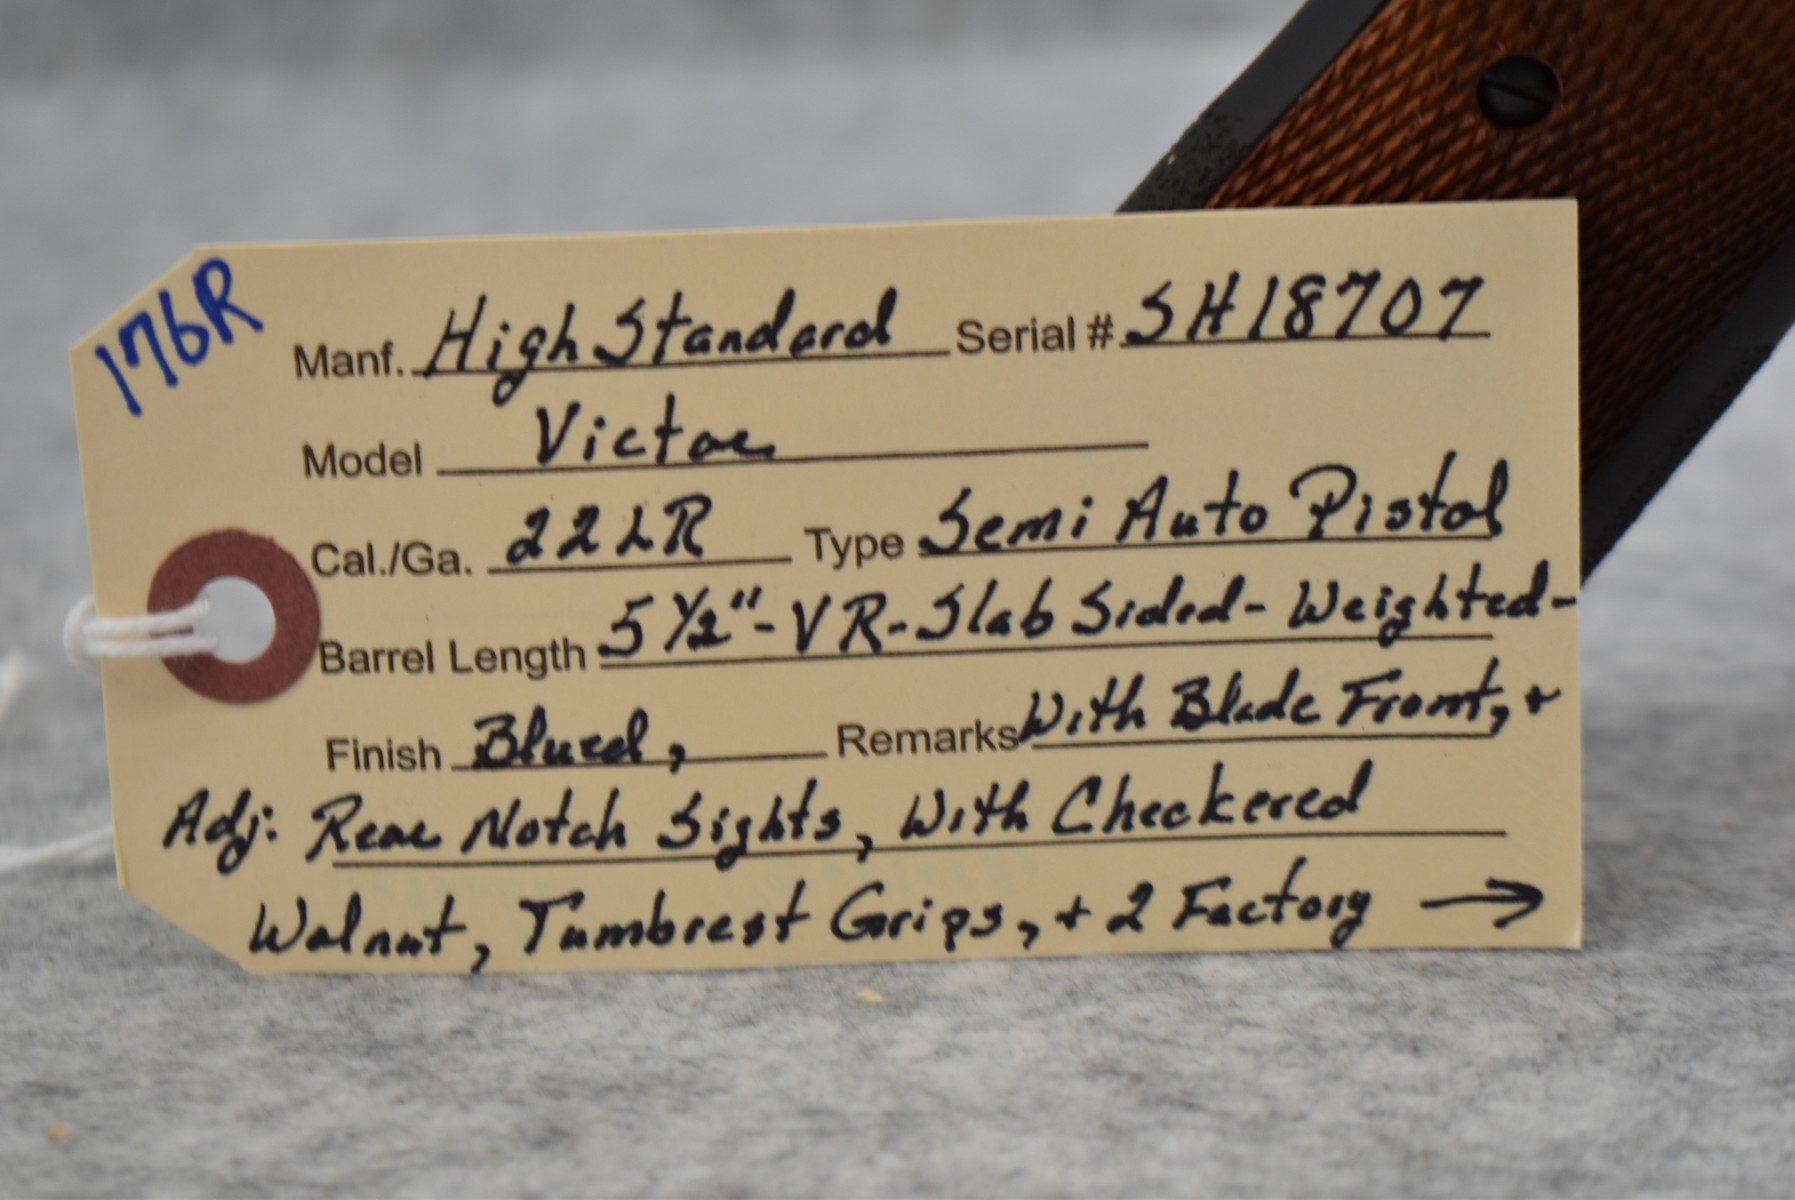 176R
Manf. High Standard Serial # SH18707
Model Victor
Cal./Ga. 22LR Type Semi Auto Pistol
Barrel Length 5 1/2"-VR-Slab Sided-Weighted-
Finish Blued, Remarks With Blade Front, +
Adj: Rear Notch Sights, With Checkered
Walnut, Tumbrest Grips, + 2 Factory →